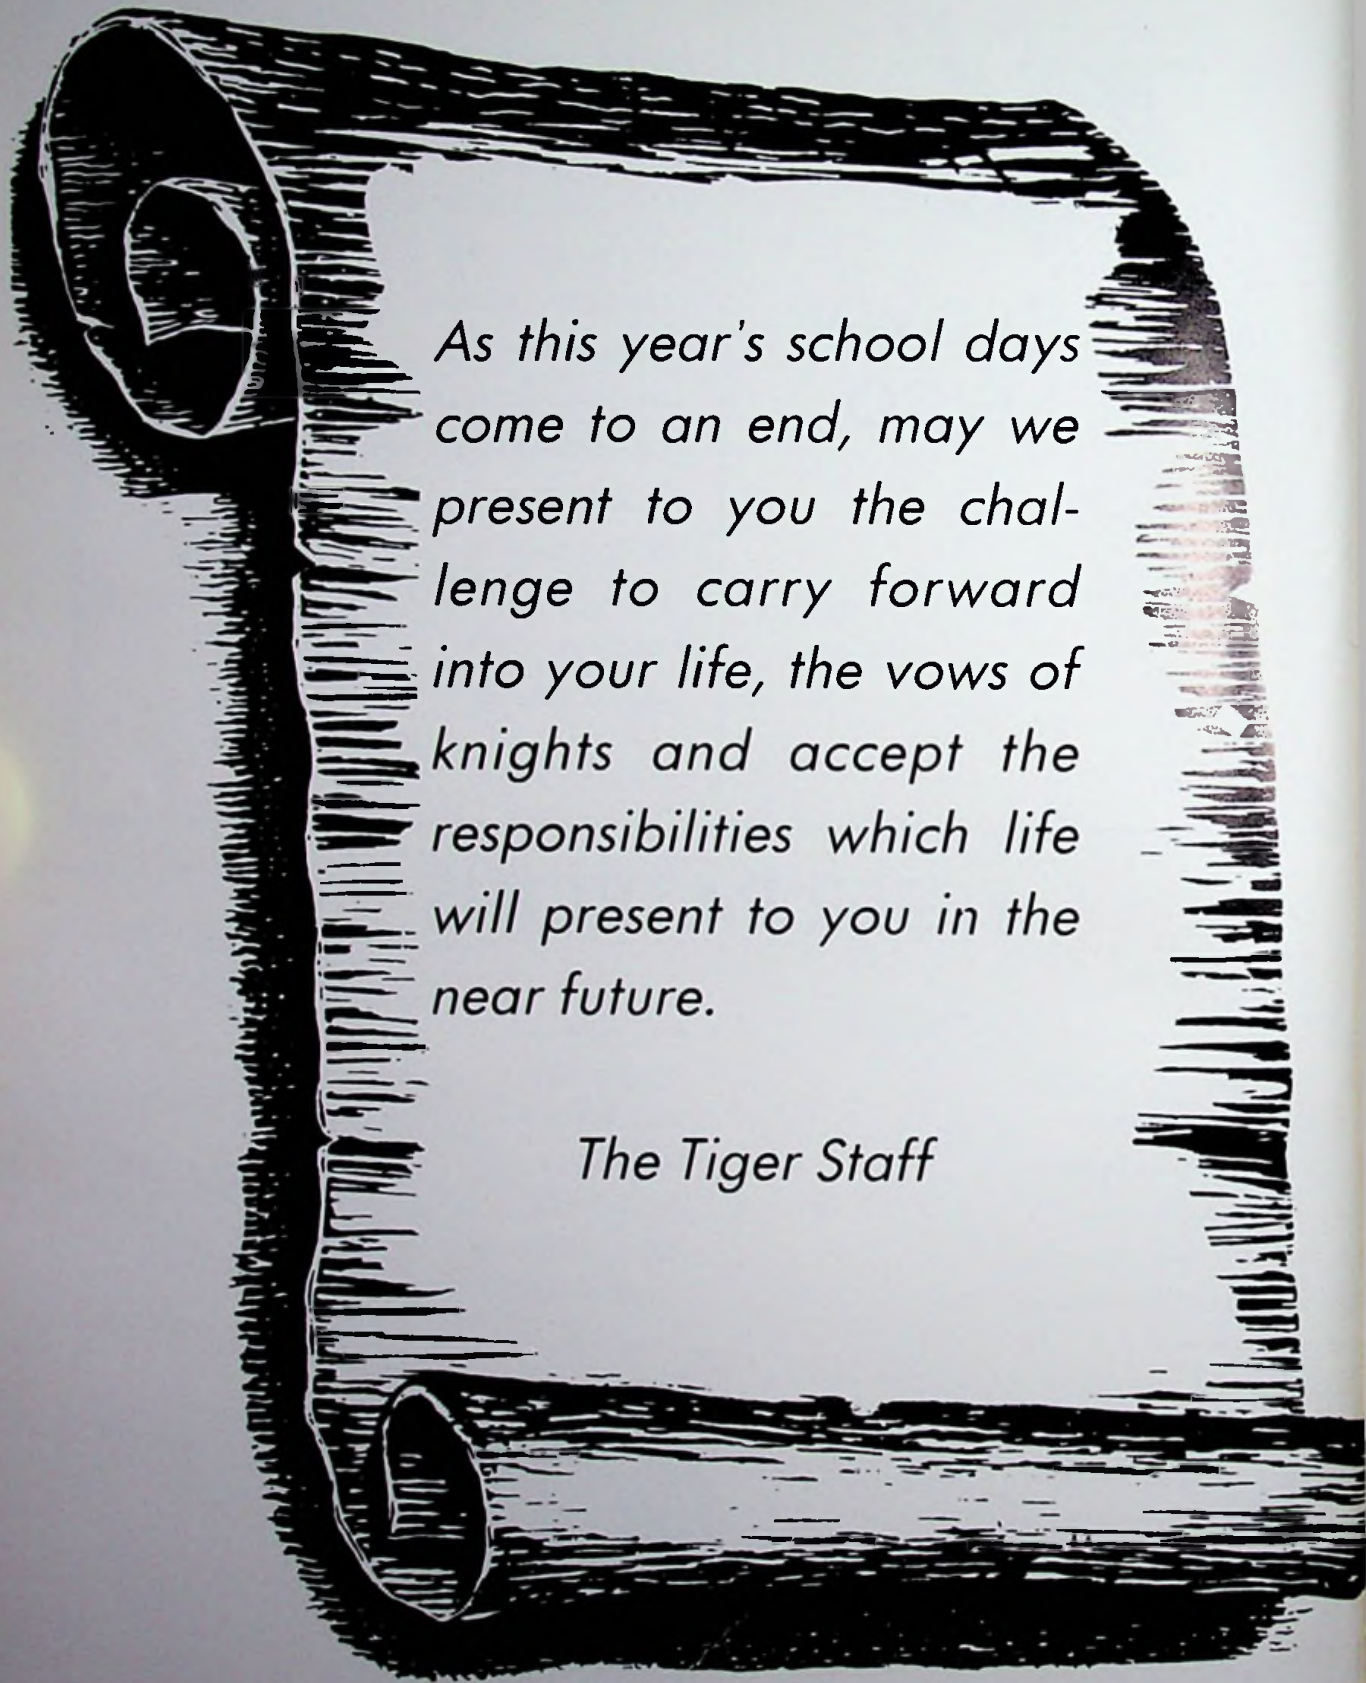 As this year's school days
come to an end, may we
present to you the chal-
lenge to carry forward
into your life, the vows of
knights and accept the
responsibilities which life
will present to you in the
near future.
The Tiger Staff